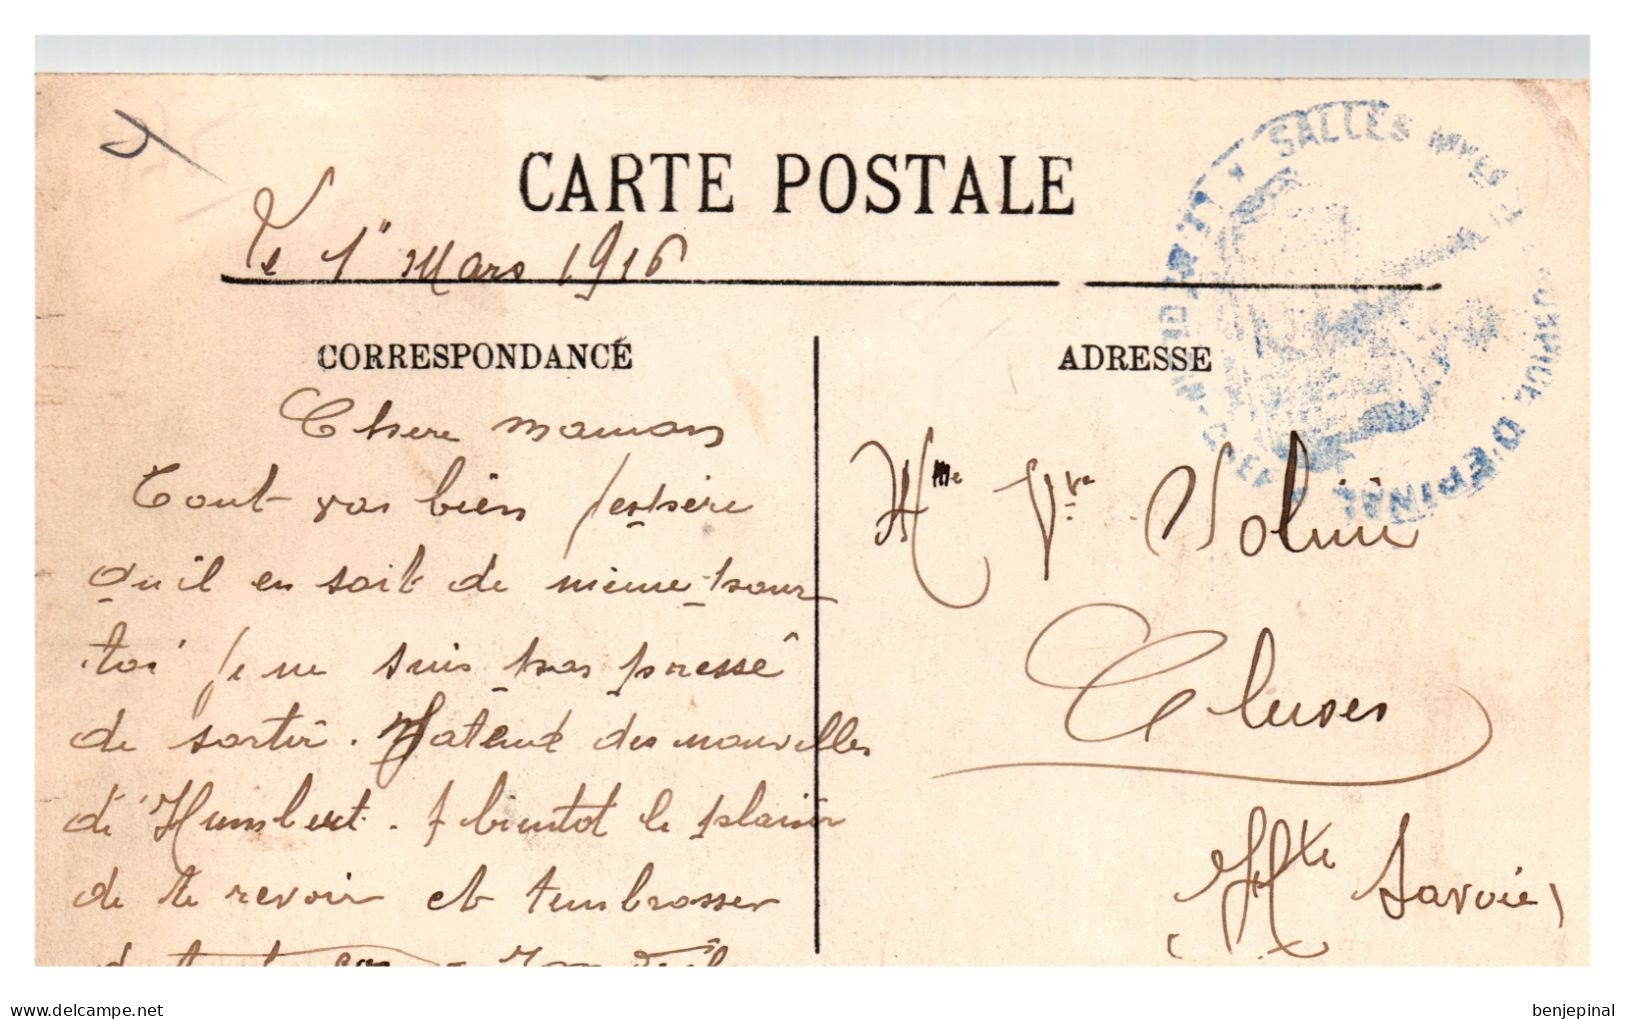 CARTE POSTALE
Le 1er Mars 1916
CORRESPONDANCE
Chere maman
Tout vas bien j'espère
qu'il en soit de même pour
toi je ne suis pas pressé
de sortir. J'atend des nouvelles
d'Humbert. A bientot le plaisir
de te revoir et t'embrasser
ADRESSE
Mme Vve
Cluses
Hte Savoie
SALLES
D'EPINAL
delcampe.net
benjepinal